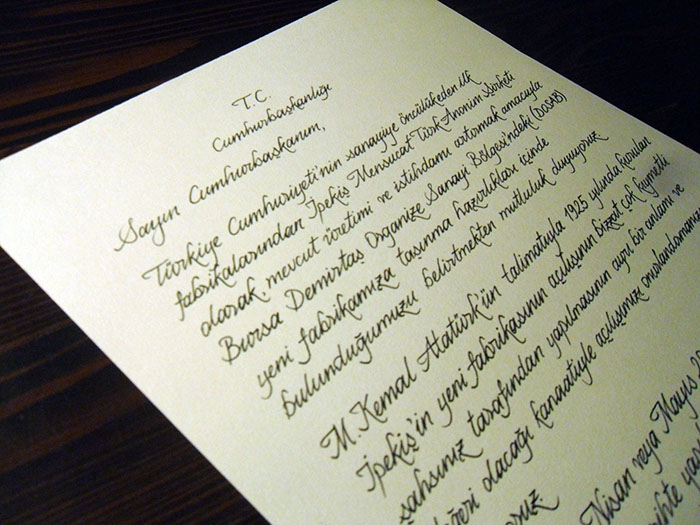 T.C.
Cumhurbaşkanlığı
Sayın Cumhurbaşkanım,
Türkiye Cumhuriyeti'nin sanayiye öncülük eden ilk
fabrikalarından İpekiş Mensucat Türk Anonim Şirketi
olarak, mevcut üretimi ve istihdamı artırmak amacıyla
Bursa Demirtaş Organize Sanayi Bölgesi'ndeki (DOSAB)
yeni fabrikamıza taşınma hazırlıkları içinde
bulunduğumuzu belirtmekten mutluluk duyuyoruz
M. Kemal Atatürk'ün talimatıyla 1925 yılında kurulan
İpekiş'in yeni fabrikasının açılışının bizzat çok kıymetli
şahsınız tarafından yapılmasının ayrı bir anlamı ve
değeri olacağı kanaatiyle açılışımızı onurlandırmanızı
Nisan veya Mayıs